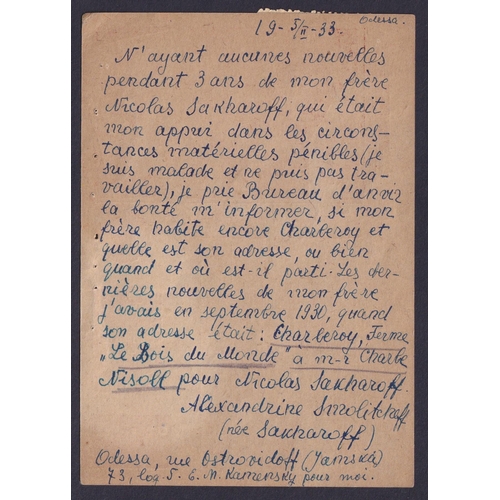 Odessa.
19-5/II-33.
N'ayant aucunes nouvelles
pendant 3 ans de mon frère
Nicolas Sakharoff, qui était
mon appui dans les circons-
tances matérielles pénibles (je
suis malade et ne puis pas tra-
vailler), je prie Bureau d'avoir
la bonté m'informer, si mon
frère habite encore Charberoy et
quelle est son adresse, ou bien
quand et où est-il parti. Les der-
nières nouvelles de mon frère
j'avais en septembre 1930, quand
son adresse était: Charberoy, Ferme
"Le Bois du Monde" à m-r Charbe
Nisoll pour Nicolas Sakharoff.
Alexandrine Smolitcheff
(née Sakharoff)
Odessa, rue Ostrovidoff (Jamskaï)
73, log. 5. E. M. Kamensky pour moi.